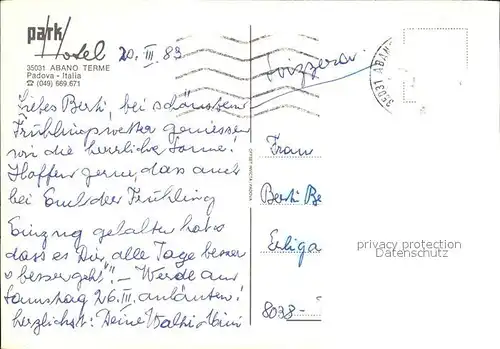 park Hotel
20. III. 83
35031 ABANO TERME
Padova - Italia
☎ (049) 669.671
Liebes Berti, bei schönstem
Frühlingswetter geniessen
wir die herrliche Sonne!
Hoffen gerne, dass auch
bei Euch der Frühling
Einzug gehalten hat &
dass es Dir "alle Tage besser
& besser geht"! - Werde am
Samstag 26. III. anläuten!
Herzlichst: Deine
Svizzera
35031 ABANO
OFFSET INVICTA PADOVA
Frau
Berti Be
Erliga
8038 -
privacy protection
Datenschutz